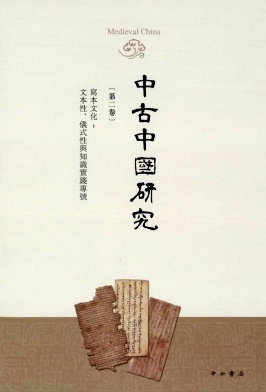 Medieval China
中古中國研究
（第二卷）
寫本文化：
文本性、儀式性與知識實踐專號
中西書局